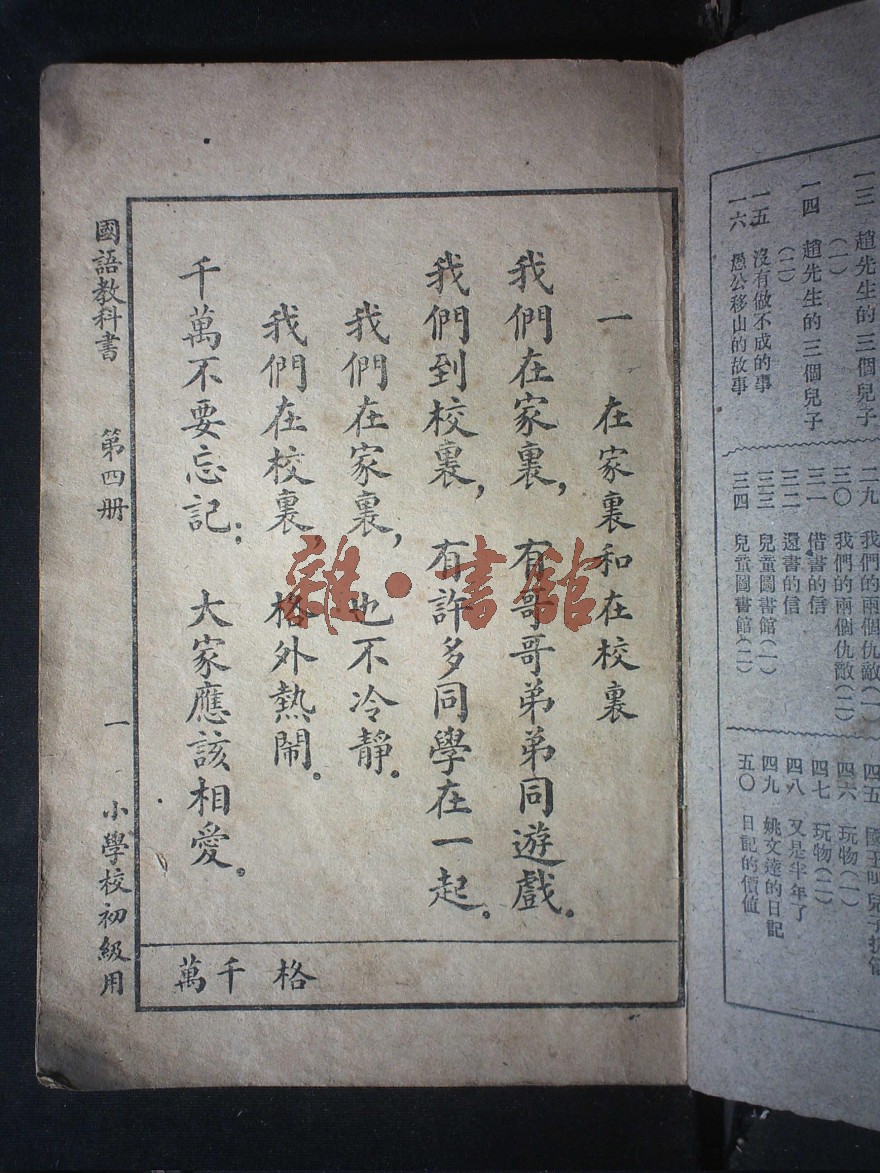 一三 趙先生的三個兒子（一）
一四 趙先生的三個兒子（二）
一五 沒有做不成的事
一六 愚公移山的故事
二九 我們的兩個仇敵（一）
三〇 我們的兩個仇敵（二）
三一 借書的信
三二 還書的信
三三 兒童圖書館（一）
三四 兒童圖書館（二）
四五 國王叫兒子
四六 玩物（一）
四七 玩物（二）
四八 又是半年了
四九 姚文達的日記
五〇 日記的價值
一 在家裏和在校裏
我們在家裏，有哥哥弟弟同遊戲。
我們到校裏，有許多同學在一起。
我們在家裏，也不冷靜。
我們在校裏，格外熱鬧。
千萬不要忘記：大家應該相愛。
格 千萬
國語教科書 第四册 一 小學校初級用
雜·書館